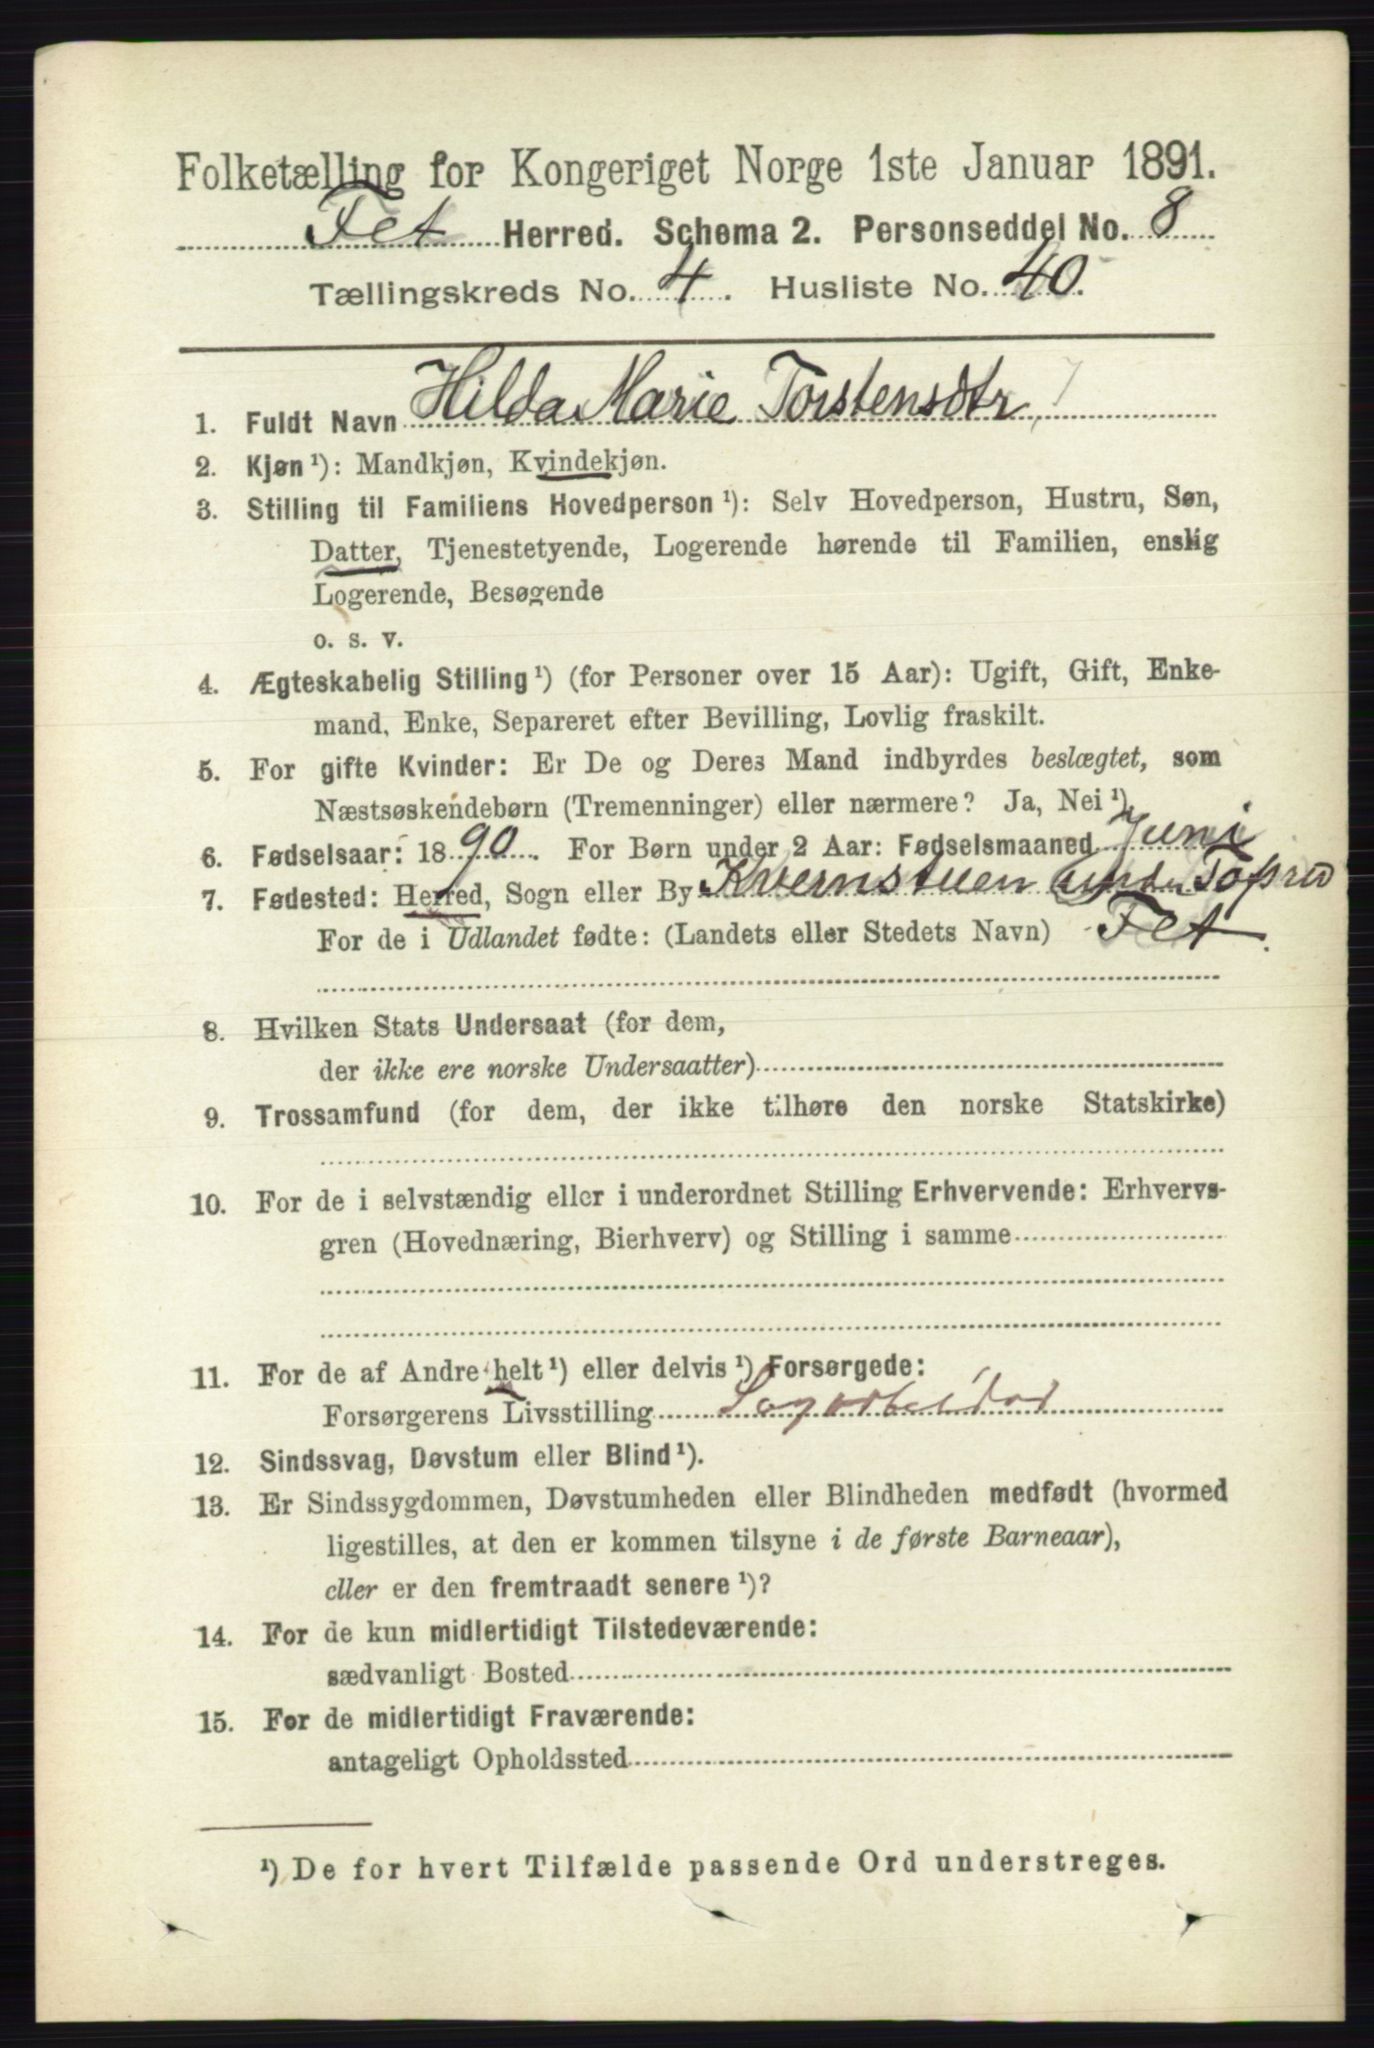 Folketælling for Kongeriget Norge 1ste Januar 1891.
Fet Herred. Schema 2. Personseddel No. 8
Tællingskreds No. 4. Husliste No. 40.
1. Fuldt Navn Hilda Marie Torstensdtr
2. Kjøn¹): Mandkjøn, Kvindekjøn.
3. Stilling til Familiens Hovedperson¹): Selv Hovedperson, Hustru, Søn,
Datter, Tjenestetyende, Logerende hørende til Familien, enslig
Logerende, Besøgende
o. s. v.
4. Ægteskabelig Stilling¹) (for Personer over 15 Aar): Ugift, Gift, Enke-
mand, Enke, Separeret efter Bevilling, Lovlig fraskilt.
5. For gifte Kvinder: Er De og Deres Mand indbyrdes beslægtet, som
Næstsøskendebørn (Tremenninger) eller nærmere? Ja, Nei¹),
6. Fødselsaar: 1890. For Børn under 2 Aar: Fødselsmaaned Juni
7. Fødested: Herred, Sogn eller By Kvernstuen
For de i Udlandet fødte: (Landets eller Stedets Navn) Fet.
8. Hvilken Stats Undersaat (for dem,
der ikke ere norske Undersaatter)
9. Trossamfund (for dem, der ikke tilhøre den norske Statskirke)
10. For de i selvstændig eller i underordnet Stilling Erhvervende: Erhvervs-
gren (Hovednæring, Bierhverv) og Stilling i samme
11. For de af Andre helt¹) eller delvis¹) Forsørgede:
Forsørgerens Livsstilling Sagarbeider
12. Sindssvag, Døvstum eller Blind¹).
13. Er Sindssygdommen, Døvstumheden eller Blindheden medfødt (hvormed
ligestilles, at den er kommen tilsyne i de første Barneaar),
eller er den fremtraadt senere¹)?
14. For de kun midlertidigt Tilstedeværende:
sædvanligt Bosted
15. For de midlertidigt Fraværende:
antageligt Opholdssted
¹) De for hvert Tilfælde passende Ord understreges.